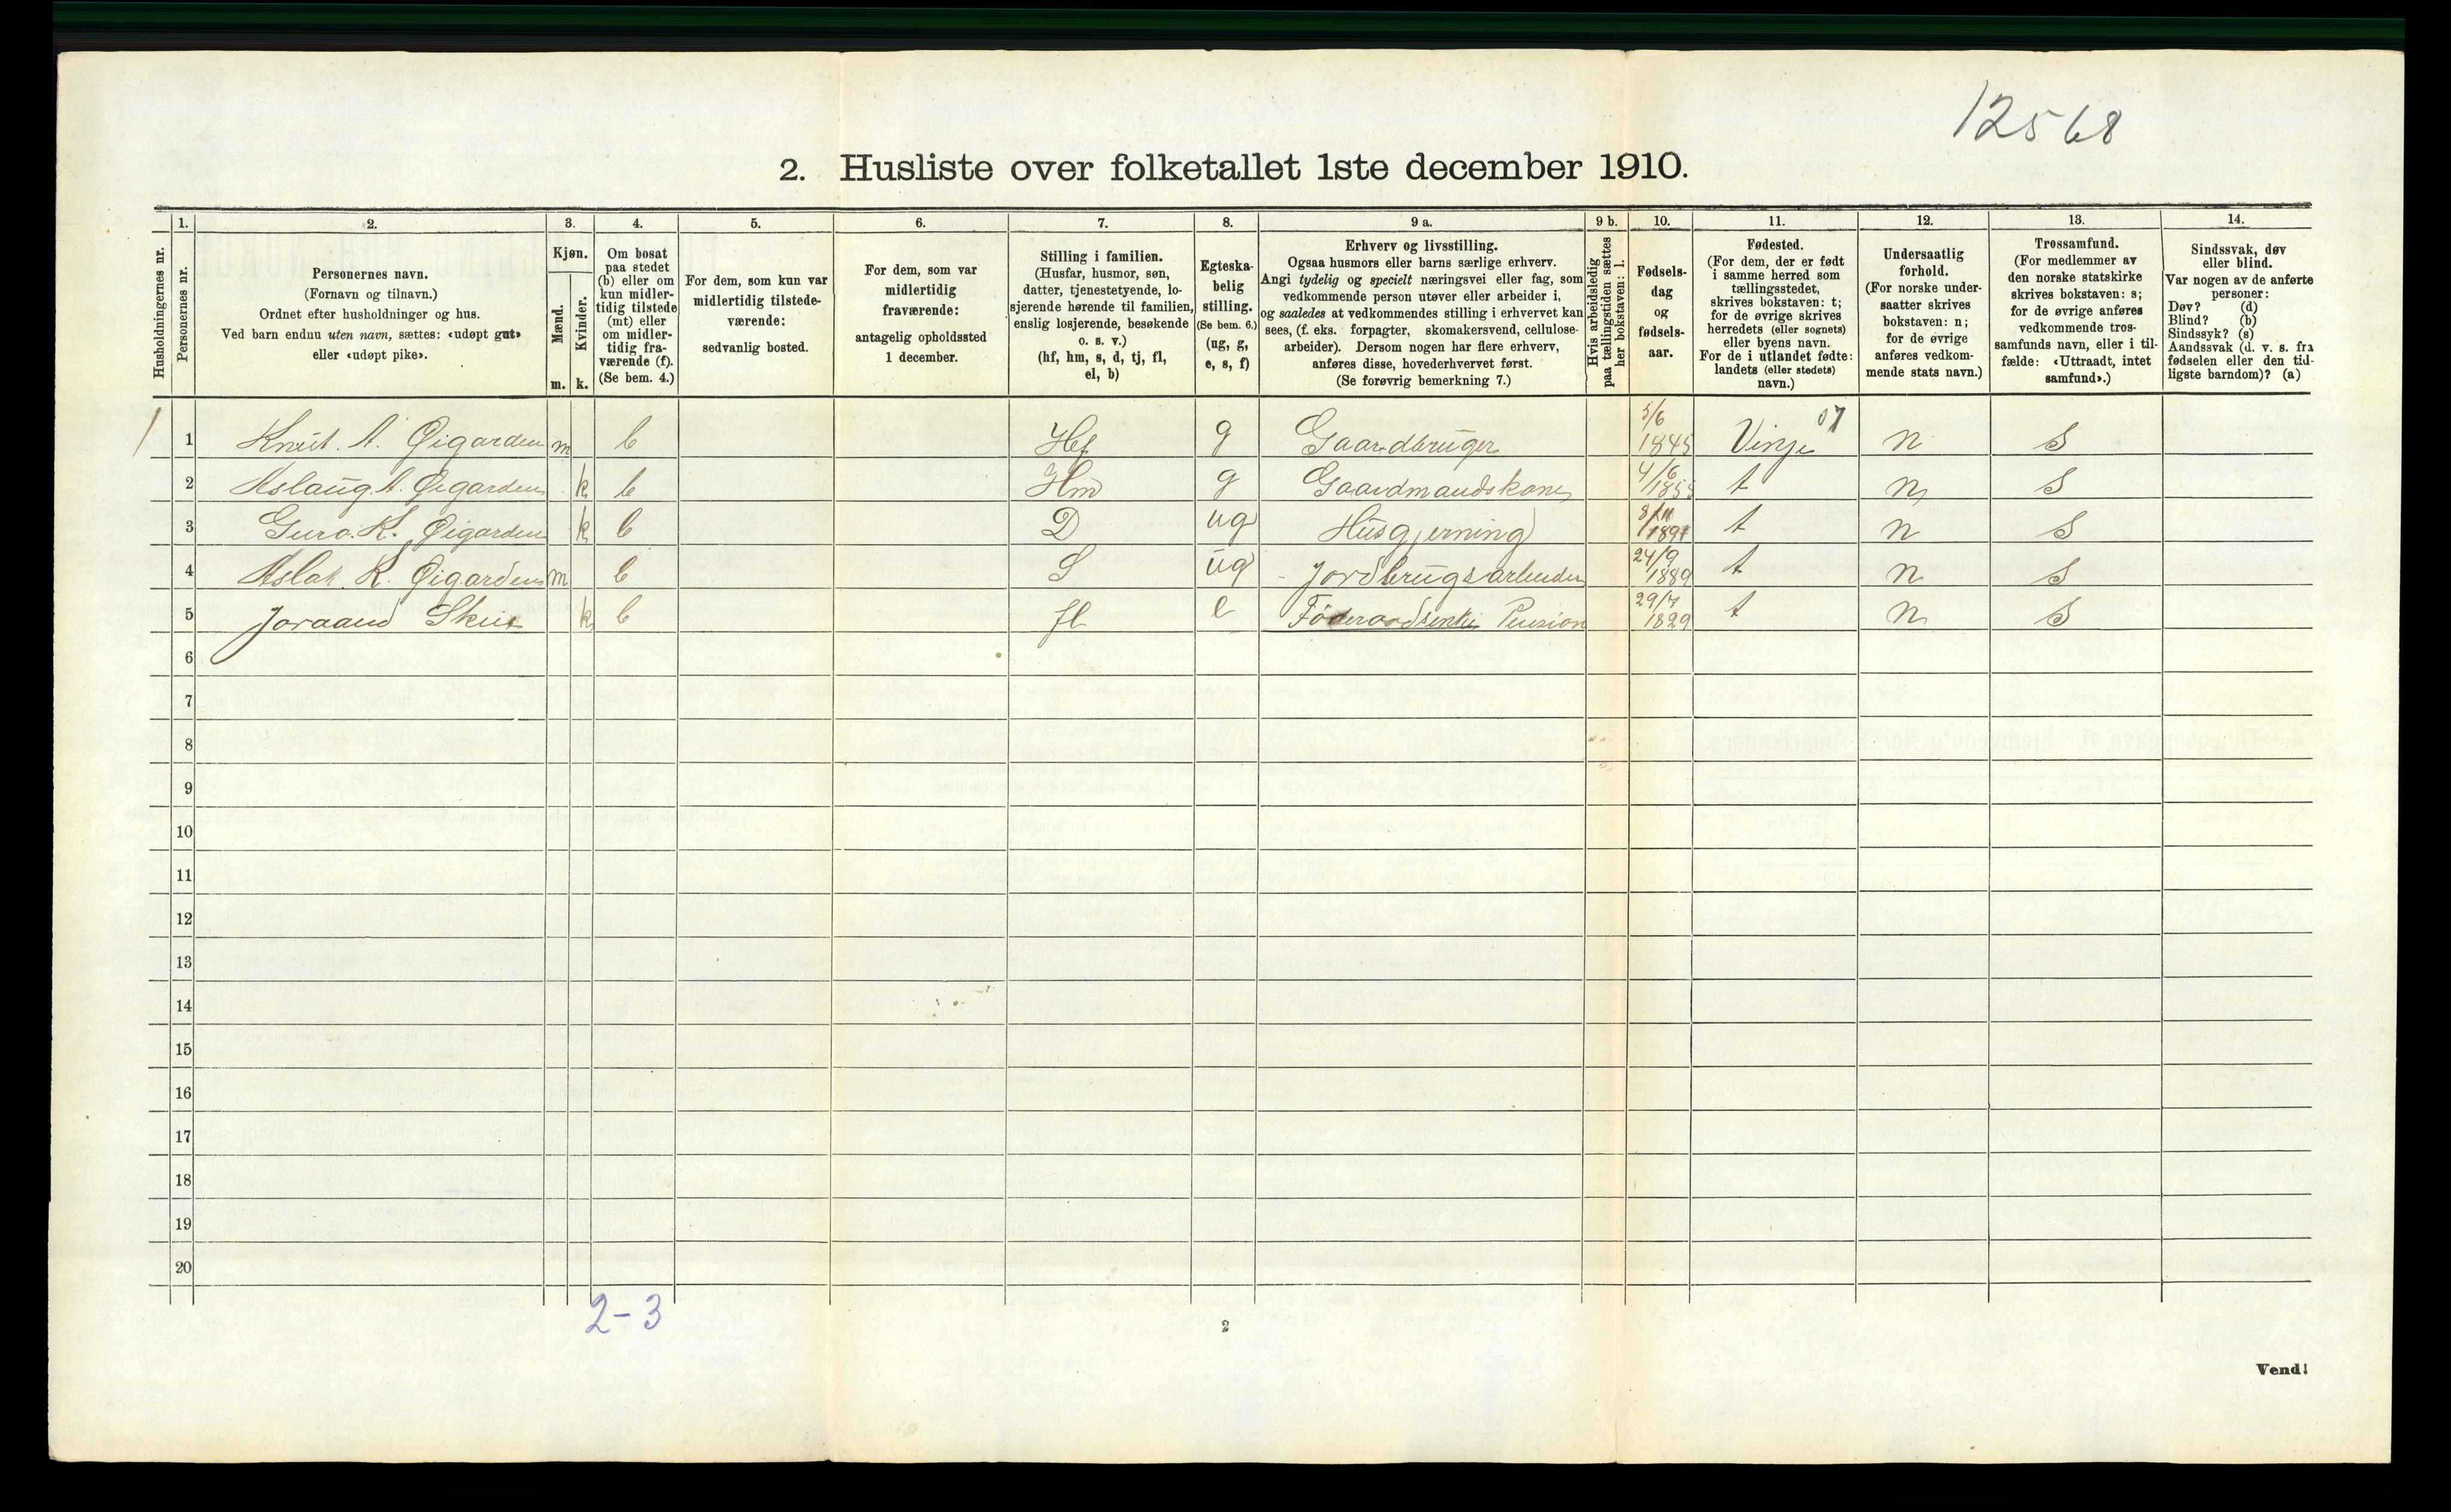 12568
2. Husliste over folketallet 1ste december 1910.
Husholdningernes nr.
1.
Personernes nr.
2.
Personernes navn.
(Fornavn og tilnavn.)
Ordnet efter husholdninger og hus.
Ved barn endnu uten navn, sættes: «udøpt gut»
eller «udøpt pike».
3.
Kjøn.
Mænd.
m.
Kvinder.
k.
4.
Om bosat
paa stedet
(b) eller om
kun midler-
tidig tilstede
(mt) eller
om midler-
tidig fra-
værende (f).
(Se bem. 4.)
5.
For dem, som kun var
midlertidig tilstede-
værende:
sedvanlig bosted.
6.
For dem, som var
midlertidig
fraværende:
antagelig opholdssted
1 december.
7.
Stilling i familien.
(Husfar, husmor, søn,
datter, tjenestetyende, lo-
sjerende hørende til familien,
enslig losjerende, besøkende
o. s. v.)
(hf, hm, s, d, tj, fl,
el, b)
8.
Egteska-
belig
stilling.
(Se bem. 6.)
(ug, g,
e, s, f)
9 a.
Erhverv og livsstilling.
Ogsaa husmors eller barns særlige erhverv.
Angi tydelig og specielt næringsvei eller fag, som
vedkommende person utøver eller arbeider i,
og saaledes at vedkommendes stilling i erhvervet kan
sees, (f. eks. forpagter, skomakersvend, cellulose-
arbeider). Dersom nogen har flere erhverv,
anføres disse, hovederhvervet først.
(Se forøvrig bemerkning 7.)
9 b.
Hvis arbeidsledig
paa tællingstiden sættes
her bokstaven: l.
10.
Fødsels-
dag
og
fødsels-
aar.
11.
Fødested.
(For dem, der er født
i samme herred som
tællingsstedet,
skrives bokstaven: t;
for de øvrige skrives
herredets (eller sognets)
eller byens navn.
For de i utlandet fødte:
landets (eller stedets)
navn.)
12.
Undersaatlig
forhold.
(For norske under-
saatter skrives
bokstaven: n;
for de øvrige
anføres vedkom-
mende stats navn.)
13.
Trossamfund.
(For medlemmer av
den norske statskirke
skrives bokstaven: s;
for de øvrige anføres
vedkommende tros-
samfunds navn, eller i til-
fælde: «Uttraadt, intet
samfund».)
14.
Sindssvak, døv
eller blind.
Var nogen av de anførte
personer:
Døv? (d)
Blind? (b)
Sindssyk? (s)
Aandssvak (d. v. s. fra
fødselen eller den tid-
ligste barndom)? (a)
1 1 Knut. A. Øigarden m b Hf g Gaardbruger 5/6 1845 Vinje 07 n S
2 Aslaug A. Øigarden k b Hm g Gaardmandskone 4/6 1855 t n S
3 Guro. K. Øigarden k b D ug Husgjerning 8/11 1891 t n S
4 Aslak K. Øigarden m b S ug Jordbrugsarbeider 24/9 1889 t n S
5 Joraand b k fl e 29/7 1829 t n S
6
7
8
9
10
11
12
13
14
15
16
17
18
19
20
2-3
2
Vend!